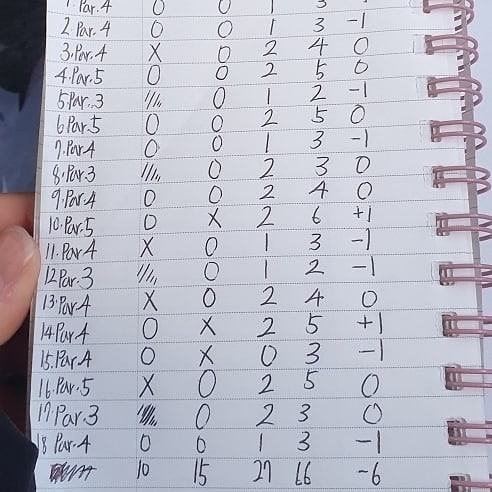 1. Par. 4 O O 1 3
2. Par. 4 O O 1 3 -1
3. Par. 4 X O 2 4 0
4. Par. 5 O O 2 5 0
5. Par. 3 O 1 2 -1
6. Par. 5 O O 2 5 0
7. Par 4 O O 1 3 -1
8. Par. 3 O 2 3 0
9. Par. 4 O O 2 4 0
10. Par. 5 O X 2 6 +1
11. Par 4 X O 1 3 -1
12 Par. 3 O 1 2 -1
13. Par 4 X O 2 4 0
14 Par 4 O X 2 5 +1
15. Par. 4 O X 0 3 -1
16. Par. 5 X O 2 5 0
17. Par. 3 O 2 3 0
18 Par. 4 O O 1 3 -1
10 15 27 66 -6